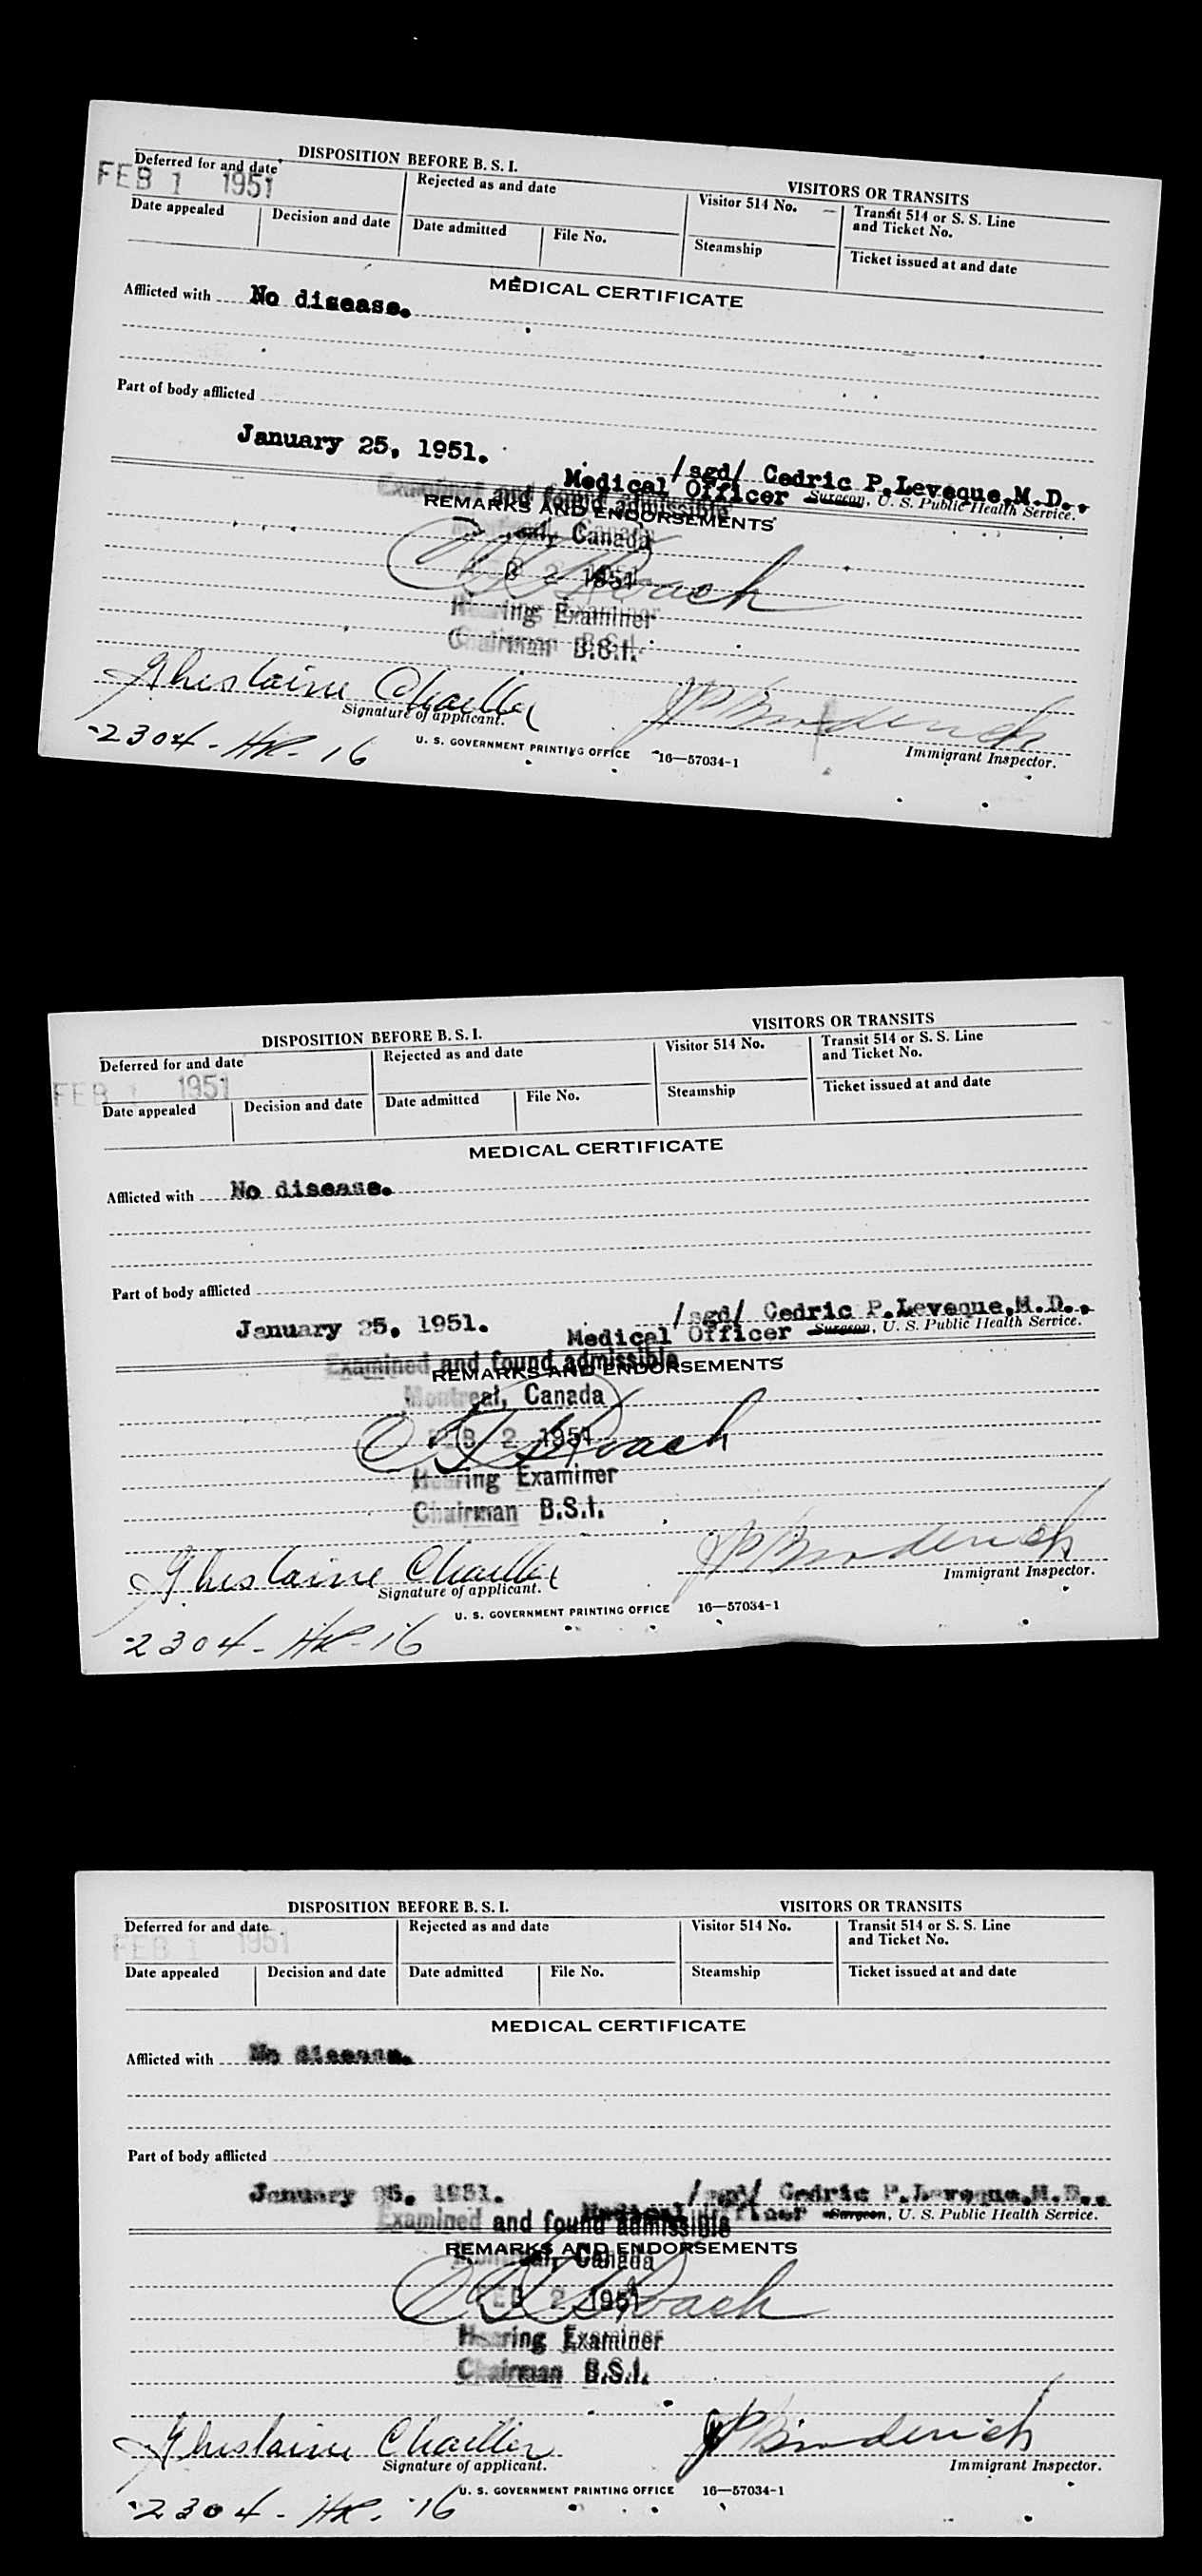 DISPOSITION BEFORE B. S. I.
VISITORS OR TRANSITS
Deferred for and date
FEB 1 1951
Rejected as and date
Visitor 514 No.
Transit 514 or S. S. Line
and Ticket No.
Date appealed
Decision and date
Date admitted
File No.
Steamship
Ticket issued at and date
MEDICAL CERTIFICATE
Afflicted with No disease.
Part of body afflicted
January 25, 1951.
/sgd/ Cedric P.Leveque,M.D.,
Medical Officer Surgeon, U. S. Public Health Service.
Examined and found admissible
REMARKS AND ENDORSEMENTS
Canada
2 1951
Roach
Hearing Examiner
Chairman B.S.I.
Ghislaine
Signature of applicant.
Immigrant Inspector.
2304-HR-16
U. S. GOVERNMENT PRINTING OFFICE 16—57034-1
DISPOSITION BEFORE B. S. I.
VISITORS OR TRANSITS
Deferred for and date
FEB 1 1951
Rejected as and date
Visitor 514 No.
Transit 514 or S. S. Line
and Ticket No.
Date appealed
Decision and date
Date admitted
File No.
Steamship
Ticket issued at and date
MEDICAL CERTIFICATE
Afflicted with No disease.
Part of body afflicted
January 25, 1951.
/sgd/ Cedric P.Leveque,M.D.,
Medical Officer Surgeon, U. S. Public Health Service.
Examined and found admissible
REMARKS AND ENDORSEMENTS
Montreal, Canada
FEB 2 1951
Roach
Hearing Examiner
Chairman B.S.I.
Ghislaine
Signature of applicant.
Immigrant Inspector.
U. S. GOVERNMENT PRINTING OFFICE 16—57034-1
2304-HR-16
DISPOSITION BEFORE B. S. I.
VISITORS OR TRANSITS
Deferred for and date
FEB 1 1951
Rejected as and date
Visitor 514 No.
Transit 514 or S. S. Line
and Ticket No.
Date appealed
Decision and date
Date admitted
File No.
Steamship
Ticket issued at and date
MEDICAL CERTIFICATE
Afflicted with No disease.
Part of body afflicted
January 25, 1951.
/sgd/ Cedric P.Leveque,M.D.,
Medical Officer Surgeon, U. S. Public Health Service.
Examined and found admissible
REMARKS AND ENDORSEMENTS
Canada
FEB 2 1951
Roach
Hearing Examiner
Chairman B.S.I.
Ghislaine
Signature of applicant.
Immigrant Inspector.
U. S. GOVERNMENT PRINTING OFFICE 16—57034-1
2304-HR-16